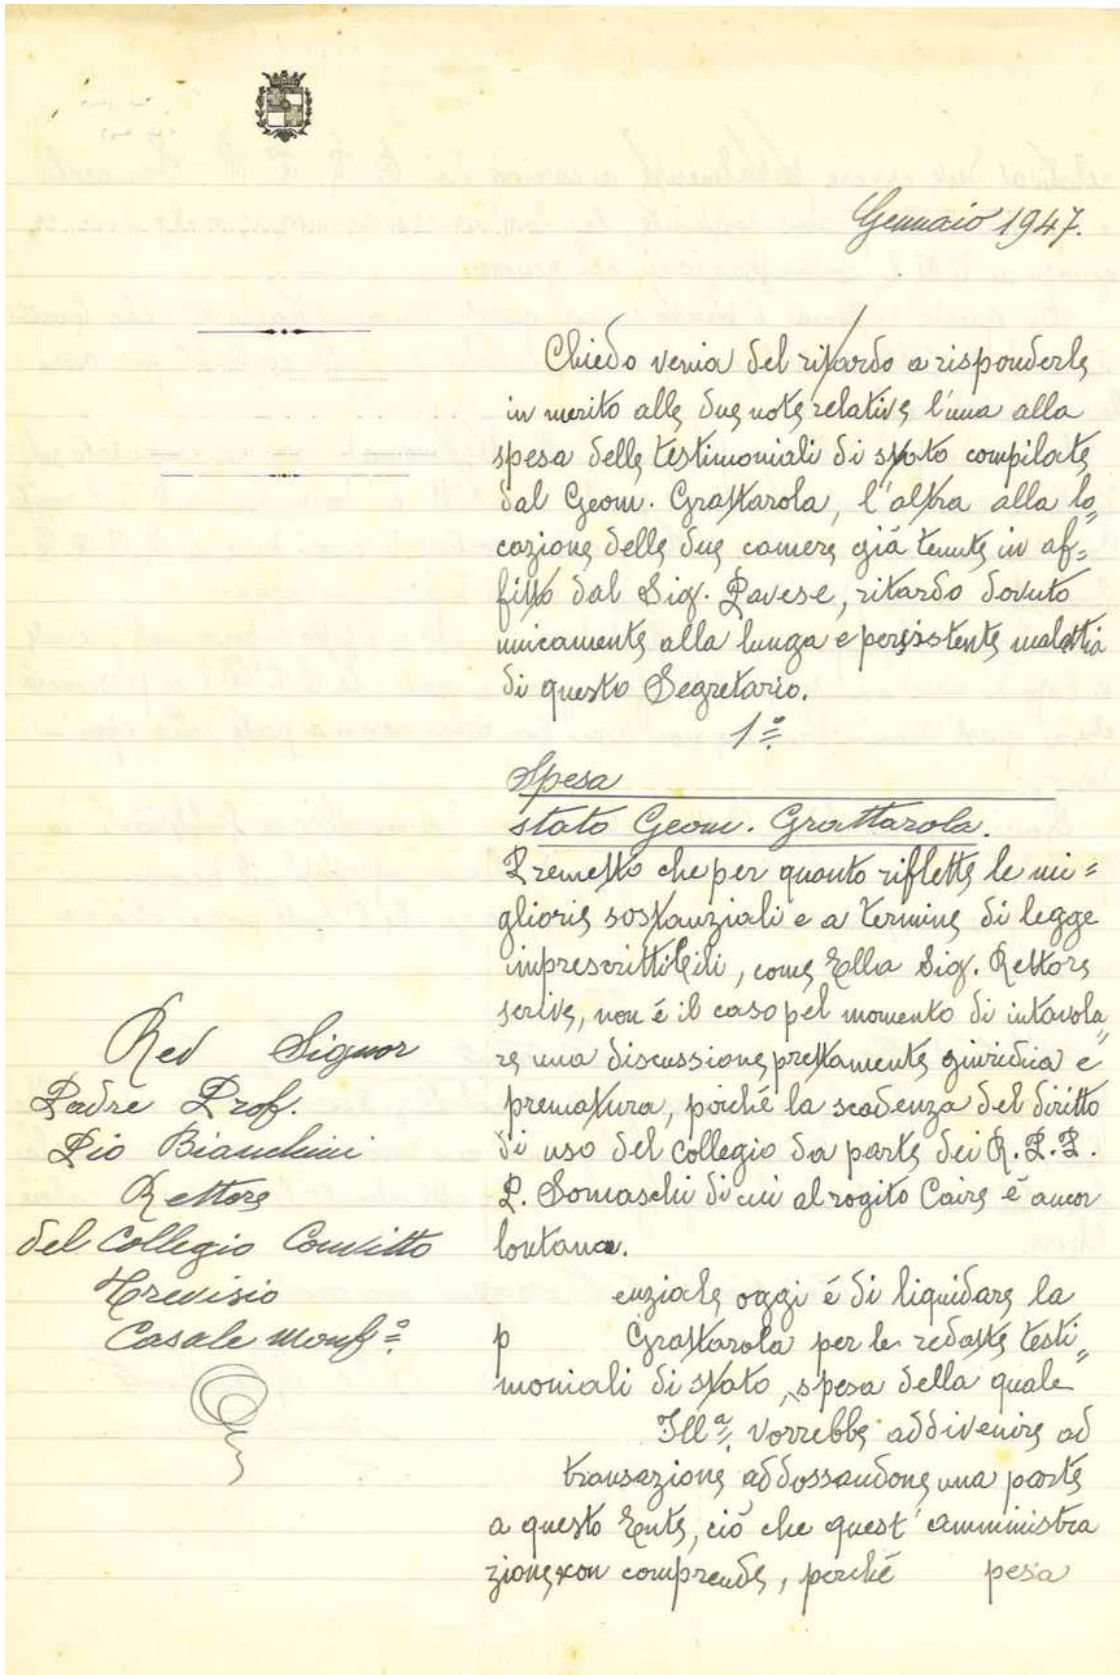 Gennaio 1947.
Chiedo venia del ritardo a risponderle
in merito alle due note relative l'una alla
spesa delle testimoniali di stato compilate
dal Geom. Grattarola, l'altra alla lo„
cazione delle due camere già tenute in af=
fitto dal Sig. Pavese, ritardo dovuto
unicamente alla lunga e persistente malattia
di questo Segretario.
1°
Spesa
stato Geom. Grattarola.
Premetto che per quanto riflette le mi=
gliorie sostanziali e a termine di legge
imprescrittibili, come Ella Sig. Rettore
scrive, non é il caso pel momento di intavola„
re una discussione prettamente giuridica e
prematura, poiché la scadenza del diritto
di uso del collegio da parte dei R.P.P.
P. Somaschi di cui al rogito Caire é ancor
lontana.
enziale oggi é di liquidare la
p Grattarola per le redatte testi„
moniali di stato, spesa della quale
Ill.ª vorrebbe addivenire ad
transazione addossandone una parte
a questo Ente, ciò che quest'amministra
zione non comprende, perché pesa
Red Signor
Padre Prof.
Pio Bianchini
Rettore
del Collegio Convitto
Trevisio
Casale Monf°